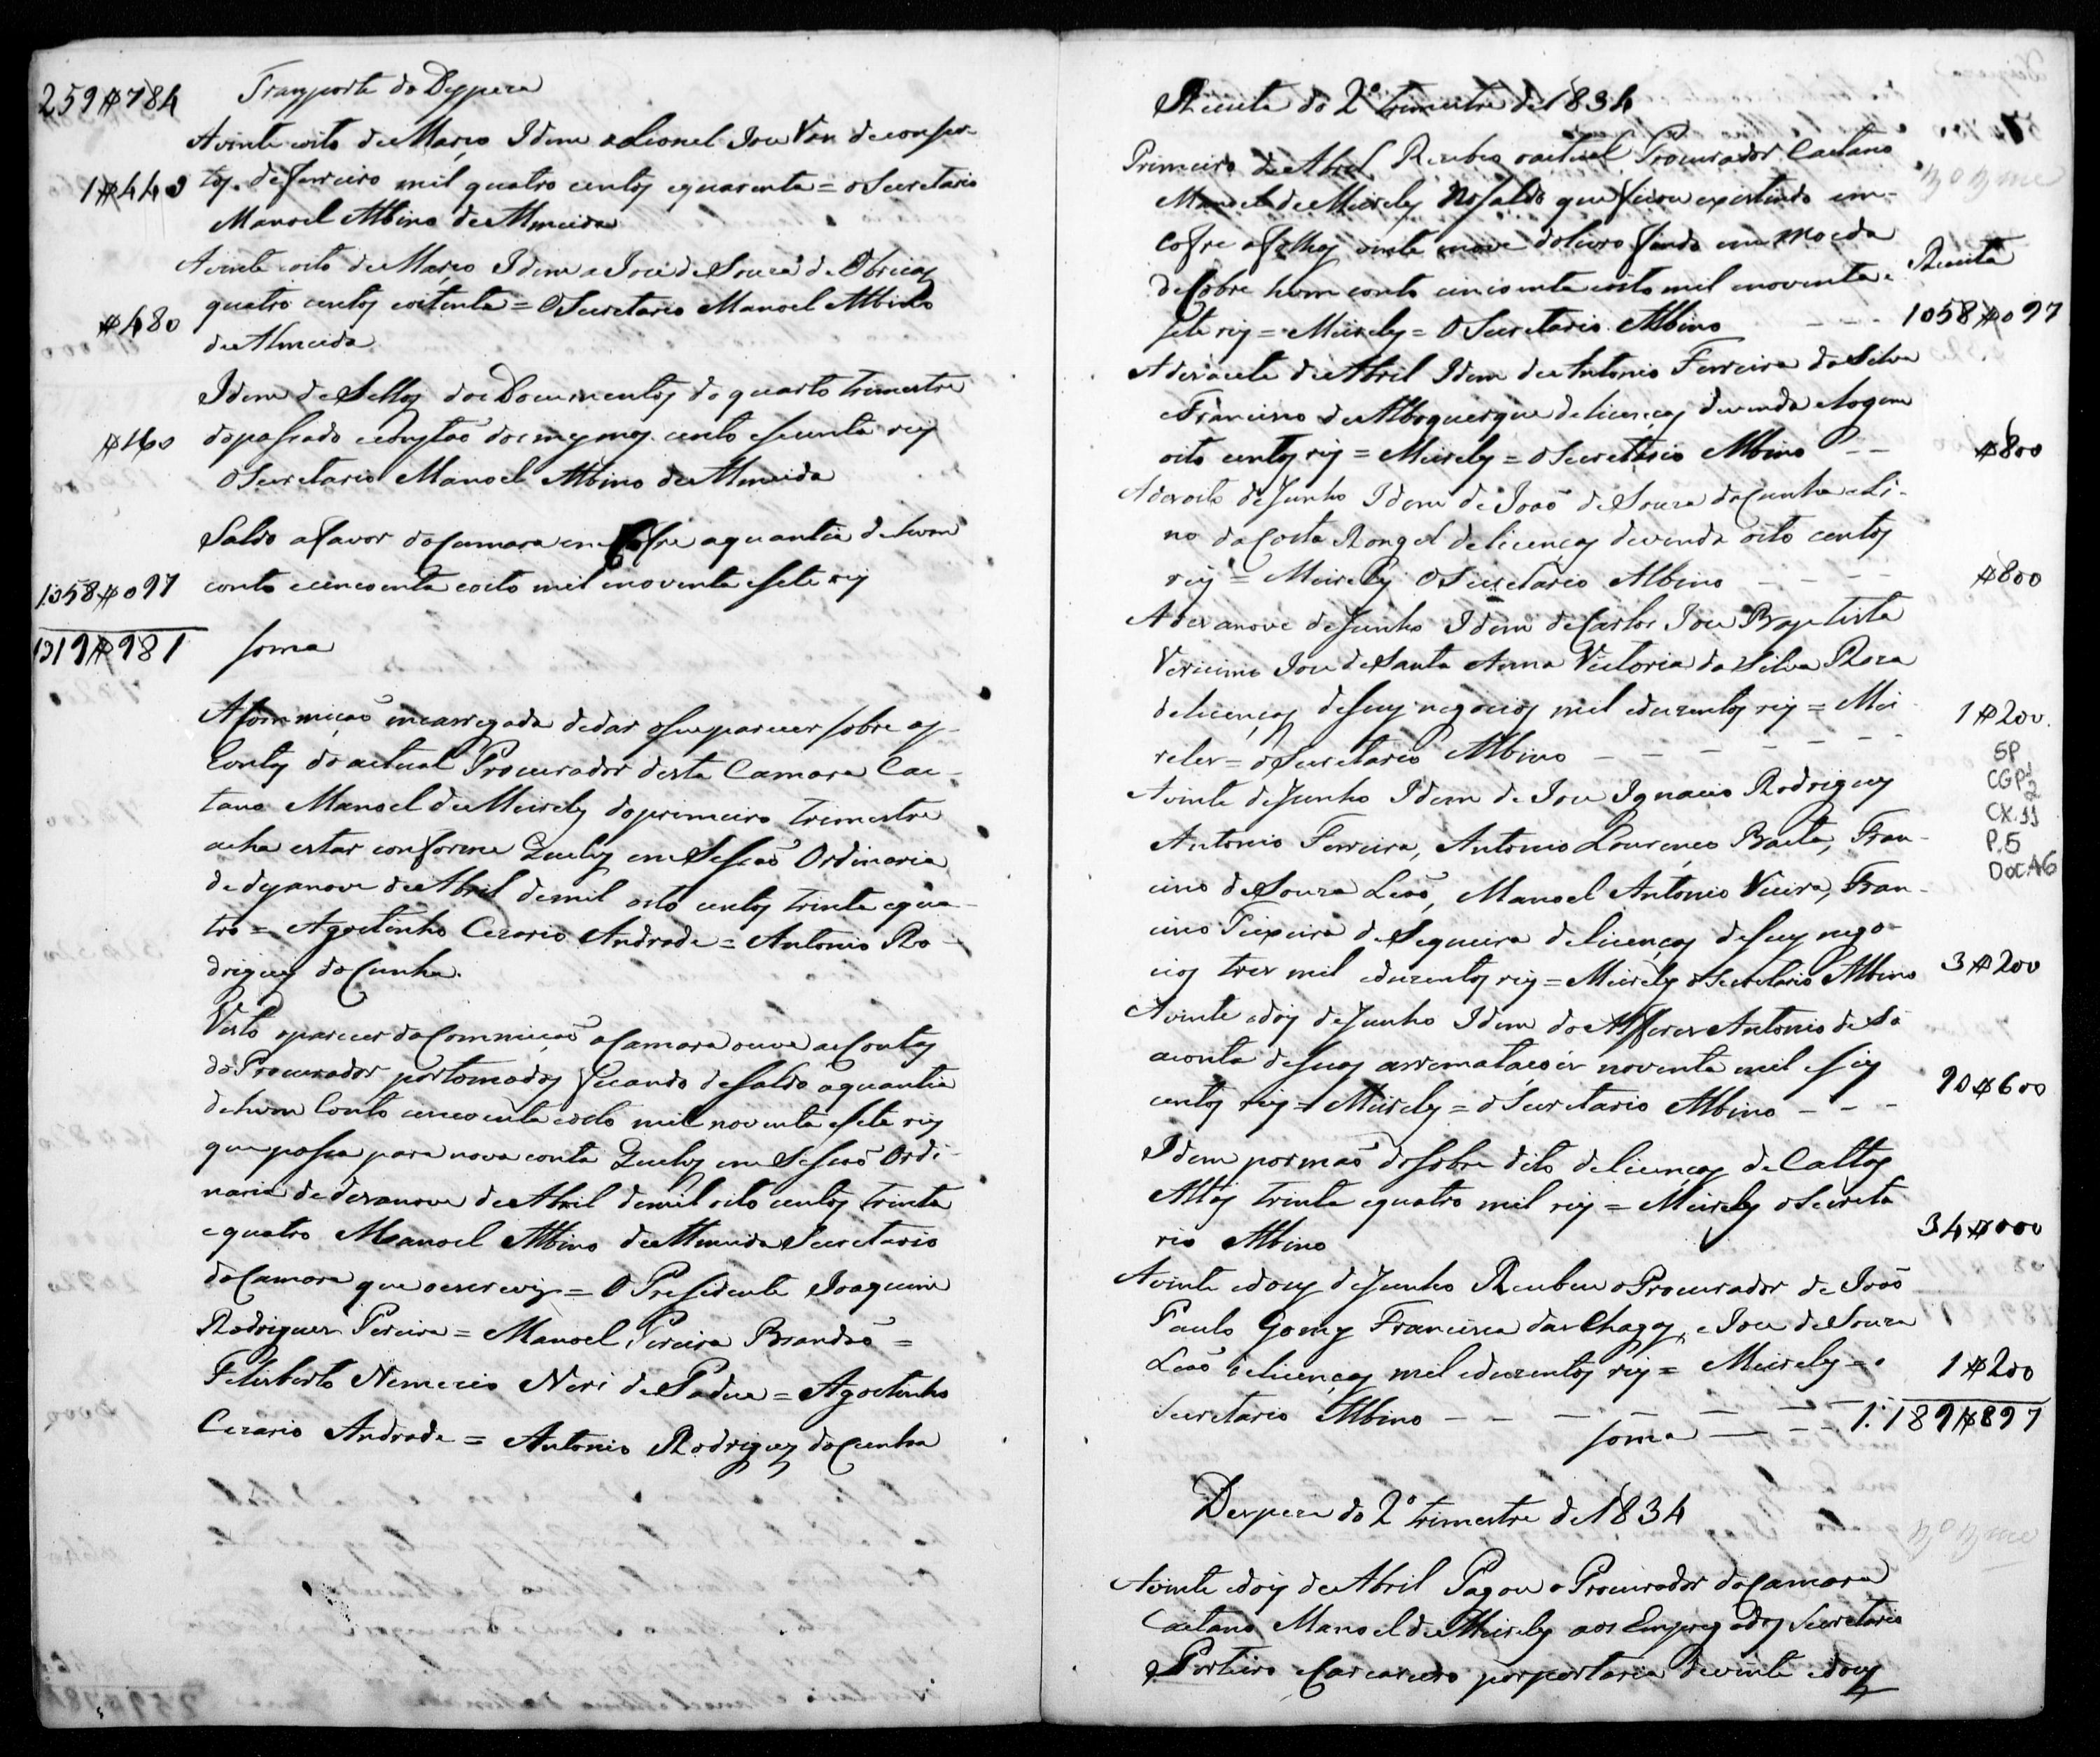 259$784 Transporte da Despeza
A vinte oito de Março Idem a Lionel Joze Van de conser-
1$440 tos de ferreiro mil quatro centos equarenta = o Secretario
Manoel Albino de Almeida
A vinte oito de Março Idem a José de Souza de Obricas
$480 quatro centos eoitenta = O Secretario Manoel Albino
de Almeida
Idem de Sellos dos Documentos do quarto trimestre
$160 do passado cento esecenta reis
O Secretario Manoel Albino de Almeida
Saldo afavor da Camara em Cofre aquantia de hum
1:058$097 conto ecincoenta eoito mil enoventa esete reis
1319$981 soma
A Commição encarregada dedar oseuparecer sobre as
Contas do actual Procurador desta Camara Cae-
tano Manoel de Meirelles doprimeiro trimestre
acha estar conforme em Sessaõ Ordinaria
de desanove de Abril demil oito centos trinta equa-
tro = Agostinho Cezario Andrade = Antonio Ro-
drigues da Cunha.
Visto oparecer da Commiçaõ a Camara ouve as Contas
do Procurador portomadas ficando desaldo aquantia
de hum Conto cincoenta eoito mil noventa esete reis
que passa para nova conta em Sessaõ Ordi-
naria de desanove de Abril demil oito centos trinta
e quatro Manoel Albino de Almeida Secretario
da Camara que oescrevy = O Presidente Joaquim
Rodrigues Pereira = Manoel Pereira Brandaõ =
Felisberto Nemecio Neri de Padua = Agostinho
Cezario Andrade = Antonio Rodrigues da Cunha
Receita do 2º trimestre de 1834
Primeiro de Abril Recebeo oactual Procurador Caetano
Manoel de Meirelles no saldo que ficou existindo em
Cofre afolhas vinte nove dolivro findo em moeda
Receita
de Cobre hum conto cincoenta eoito mil enoventa e
sete reis = Meirelles = O Secretario Albino - - - 1058$097
A desacete de Abril Idem de Antonio Ferreira da Silva
e Francisco de Alboquerque delicenças devenda
oito centos reis = Meirelles = o Secretario Albino - - $800
A desoito de Junho Idem de Joaõ de Souza da Cunha e Li-
no da Costa Rangel delicenças devenda oito centos
reis = Meirelles O Secretario Albino - - - - $800
A desanove de Junho Idem de Carlos Joze Baptista
Verissimo Joze de Santa Anna Victoria da Silva Roza
delicenças deseus negocios mil eduzentos reis = Mei- 1$200.
reles = o Secretario Albino - - - - - - -
SP
CGP1
2
CX.11
P.5
DOC.46
A vinte de Junho Idem de Joze Ignacio Rodrigues
Antonio Ferreira, Antonio Lourenço Baeta, Fran-
cisco de Souza Leaõ, Manoel Antonio Vieira, Fran-
cisco Teixeira de Siqueira delicenças deseus nego-
cios tres mil eduzentos reis = Meirelles o Secretario Albino 3$200
A vinte edois de Junho Idem do Alferes Antonio de Sá
aconta desuas arremataçoẽs noventa mil e seis
centos reis = Meirelles = o Secretario Albino - - - 90$600
Idem pormaõ dosobre dito delicenças de Caltos
Altos trinta equatro mil reis = Meirelles o Secreta
rio Albino 34$000
A vinte edous de Junho Recebeu o Procurador de Joaõ
Paulo Gomes Francisca das Chagas, e Joze de Souza
Leaõ delicenças mil eduzentos reis = Meirelles = o 1$200
Secretario Albino - - - - - - -
soma - - - 1:189$897
Despeza do 2º trimestre de 1834
A vinte edois de Abril Pagou o Procurador da Camara
Caetano Manoel de Meirelles aos Empregados Secretario
Porteiro e Carcareiro porportaria devinte edous